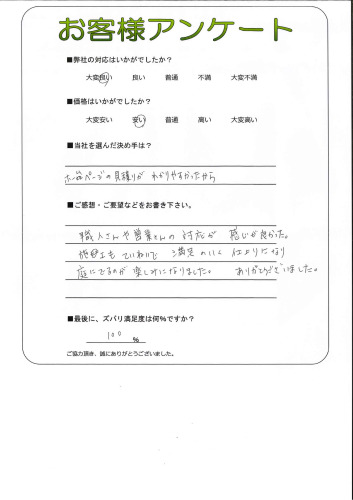 お客様アンケート
■弊社の対応はいかがでしたか？
大変良い 良い 普通 不満 大変不満
■価格はいかがでしたか？
大変安い 安い 普通 高い 大変高い
■当社を選んだ決め手は？
ホームページの見積りが わかりやすかったから
■ご感想・ご要望などをお書き下さい。
職人さんや営業さんの対応が 感じが良かった。
施工もていねいで 満足のいく 仕上りになり
庭にでるのが 楽しみになりました。 ありがとうございました。
■最後に、ズバリ満足度は何％ですか？
100 ％
ご協力頂き、誠にありがとうございました。